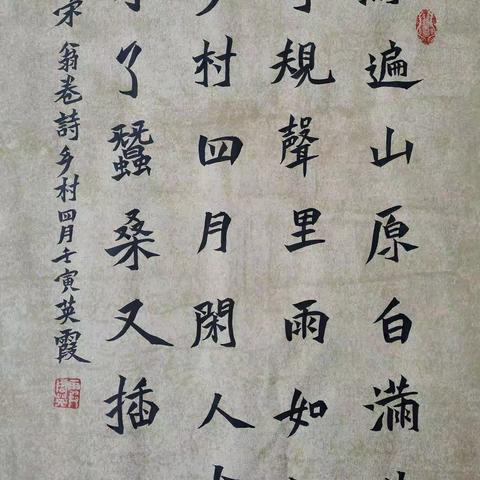 遍山原白滿
規聲里雨如
乡村四月閑人
了蠶桑又插
宋翁卷詩乡村四月壬寅英霞